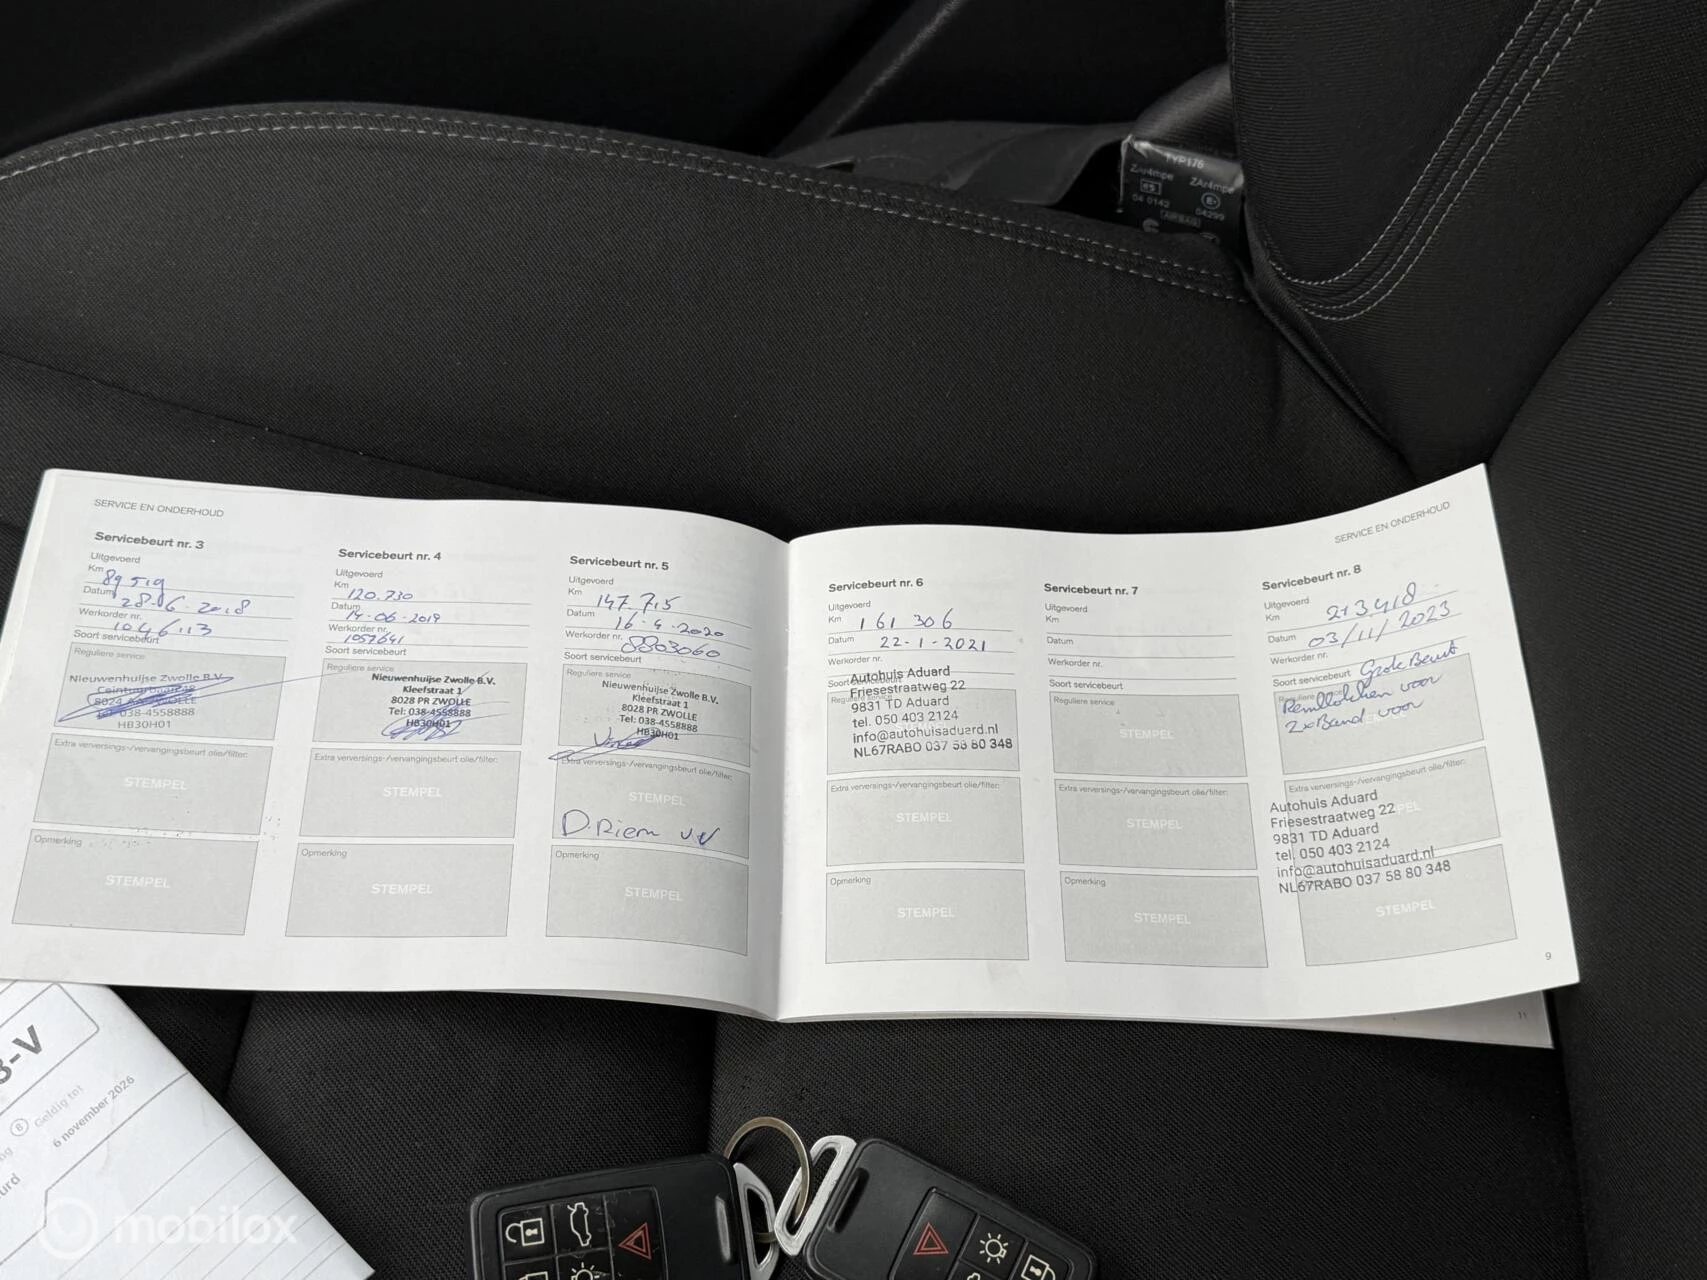 TYP176
04 0142
04299
AIRBAG
SERVICE EN ONDERHOUD
Servicebeurt nr. 3
Uitgevoerd
Km 89519
Datum 28-06-2018
Werkorder nr. 1046113
Soort servicebeurt
Reguliere service
Nieuwenhuijse Zwolle B.V.
8024 ZWOLLE
tel: 038-4558888
HB30H01
Extra verversings-/vervangingsbeurt olie/filter:
STEMPEL
Opmerking
STEMPEL
Servicebeurt nr. 4
Uitgevoerd
Km 120.730
Datum 14-06-2019
Werkorder nr. 1057641
Soort servicebeurt
Reguliere service
Nieuwenhuijse Zwolle B.V.
Kleefstraat 1
8028 PR ZWOLLE
Tel: 038-4558888
HB30H01
Extra verversings-/vervangingsbeurt olie/filter:
STEMPEL
Opmerking
STEMPEL
Servicebeurt nr. 5
Uitgevoerd
Km 147.715
Datum 16-4-2020
Werkorder nr. 8803060
Soort servicebeurt
Reguliere service
Nieuwenhuijse Zwolle B.V.
Kleefstraat 1
8028 PR ZWOLLE
Tel: 038-4558888
HB30H01
Extra verversings-/vervangingsbeurt olie/filter:
STEMPEL
D.Riem VV
Opmerking
STEMPEL
Servicebeurt nr. 6
Uitgevoerd
Km 161 306
Datum 22-1-2021
Werkorder nr.
Soort servicebeurt
Reguliere service
Autohuis Aduard
Friesestraatweg 22
9831 TD Aduard
tel. 050 403 2124
info@autohuisaduard.nl
NL67RABO 037 58 80 348
Extra verversings-/vervangingsbeurt olie/filter:
STEMPEL
Opmerking
STEMPEL
Servicebeurt nr. 7
Uitgevoerd
Km
Datum
Werkorder nr.
Soort servicebeurt
Reguliere service
STEMPEL
Extra verversings-/vervangingsbeurt olie/filter:
STEMPEL
Opmerking
STEMPEL
SERVICE EN ONDERHOUD
Servicebeurt nr. 8
Uitgevoerd
Km 213.418
Datum 03/11/2023
Werkorder nr.
Soort servicebeurt Grote Beurt
Reguliere service
Remblokken voor
2x Band voor
Extra verversings-/vervangingsbeurt olie/filter:
Autohuis Aduard
Friesestraatweg 22
9831 TD Aduard
tel. 050 403 2124
info@autohuisaduard.nl
NL67RABO 037 58 80 348
STEMPEL
9
11
3-V
8 Geldig tot
6 november 2026
mobilox